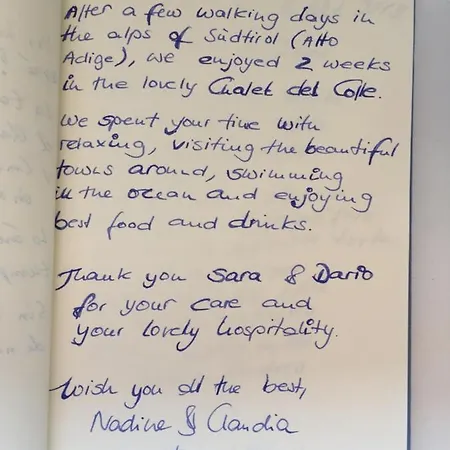 After a few walking days in
the alps of Südtirol (Alto
Adige), we enjoyed 2 weeks
in the lovely Chalet del Colle.
We spent your time with
relaxing, visiting the beautiful
towns around, swimming
in the ocean and enjoying
best food and drinks.
Thank you Sara & Dario
for your care and
your lovely hospitality.
Wish you all the best,
Nadine & Claudia